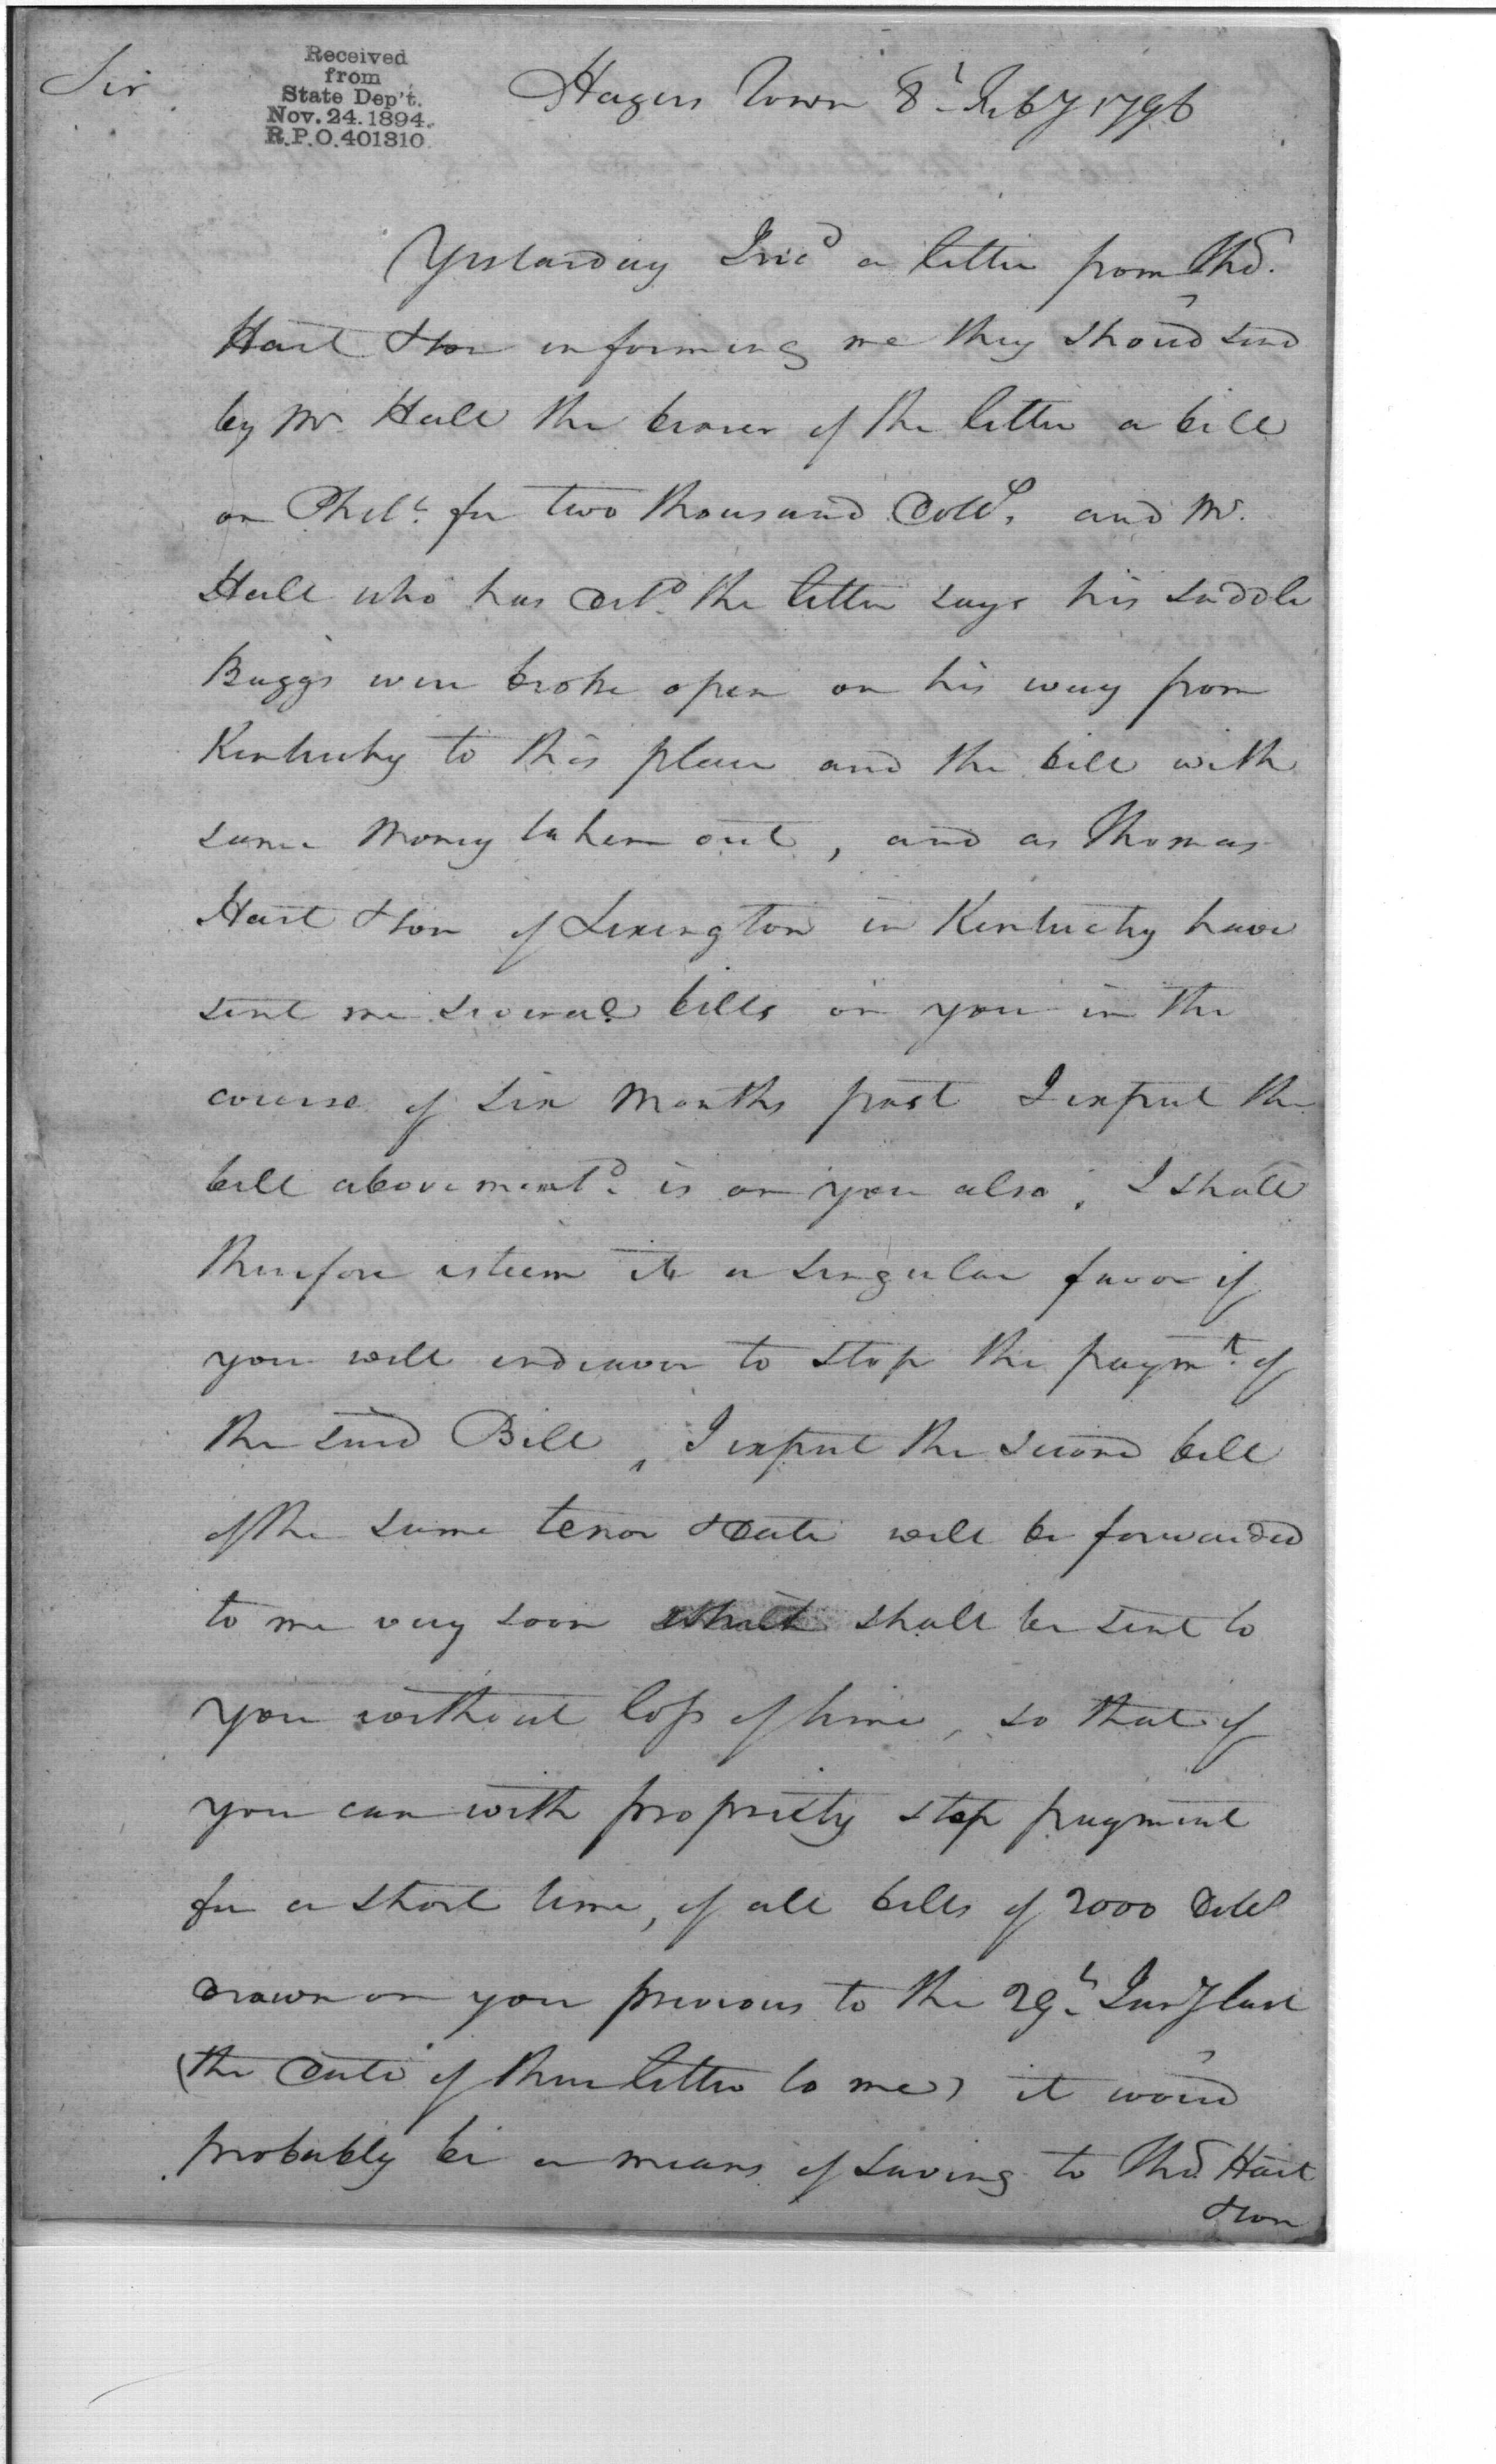 Sir
Received
from
State Dep't.
Nov. 24. 1894.
R.P.O. 401310.
Hagers Town 8th Feby 1796
Yestarday I recd a letter from Thos.
Hart & Son informing me they shou'd send
by Mr. Hall the bearer of the letter a bill
on Phila. for two thousand Dolls. and Mr.
Hall who has deld. the letter says his saddle
Baggs were broke open on his way from
Kentucky to this place and the bill with
some Money taken out, and as Thomas
Hart & Son of Lexington in Kentucky have
sent me several bills on you in the
course of six Months past I expect the
bill above mentd. is on you also, I shall
therefore esteem it a singular favor if
you will endeavor to stop the paymt. of
the said Bill, I expect the second bill
of the same tenor & date will be forwarded
to me very soon shall be sent to
you without loss of time, so that if
you can with propriety stop payment
for a short time, of all bills of 2000 Dolls
drawn on you previous to the 29th Jany last
(the date of their letter to me) it wou'd
probably be a means of saving to Thos. Hart
& Son